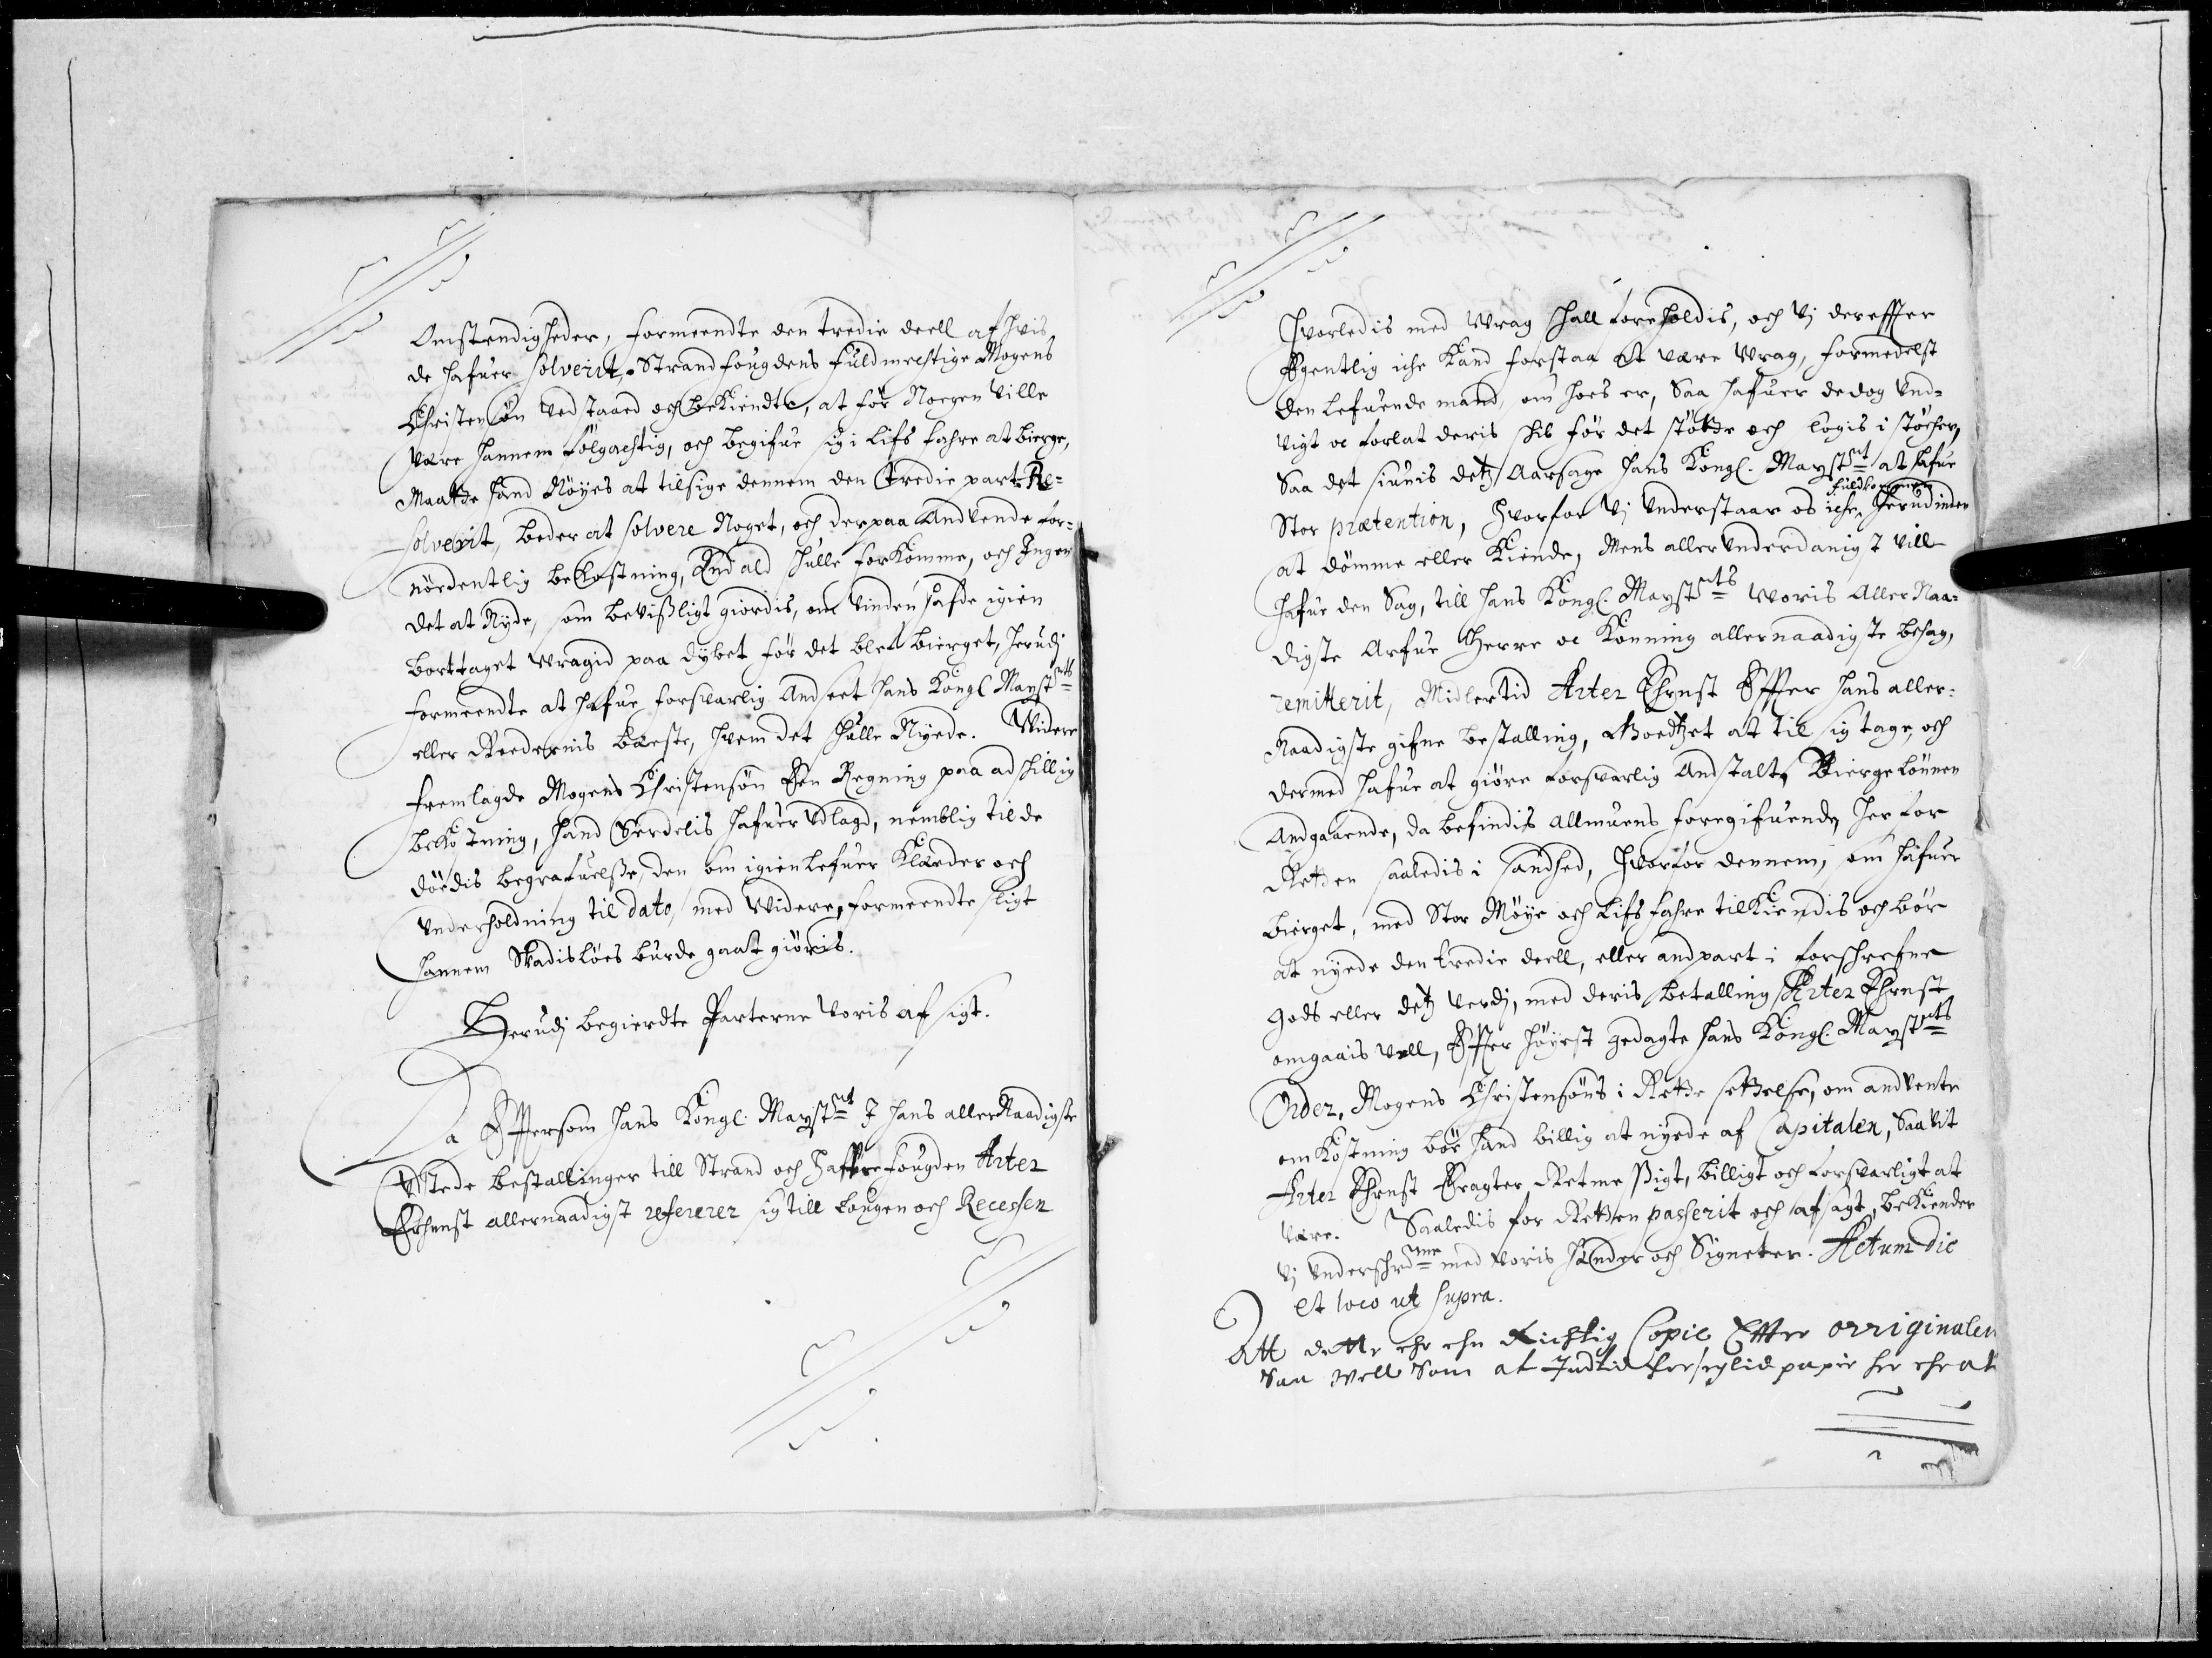 Omstendigheder, formeendte den tredie deell af hvis
de hafuer solverit, Strandfougdens fuldmechtige Mogens
Christensøn ved staard och bekiendte, at før Noegen ville
være hannem følgachtig, och begifue sig i lifs fahre at bierge,
Maatte hand Nøyes at tilsige dennem den tredie part Re-
solverit, beder at solvere Noget, och derpaa Andvende for-
nørdentlig bekostning, End ald skulle forkomme, och Ingen
det at Nyde, som bevißligt giordis, om vinden hafde igien
borttaget Wragid paa dybet før det blef bierget, herudj
formeendte at hafue forsvarlig Andseet hans Kongl Mayst:ts
eller Reedernis beeste, hvem det skulle Nyede. Widere
fremlagde Mogens Christensøn Een Regning paa adskillig
bekostning, hand Særdelis hafuer udlagd, nemblig til de
dödis begrafuelße, den om igienlefuer Klæder och
underholdning til dato, med Widere, formeendte sligt
hannem Skadisløes burde gaat giøris.
Herudj begierdte Parterne voris afsigt.
Da Effersom hans Kongl. Mayst:t I hans allerNaadigste
udstede bestallinger till Strand och Haffre fougden Artez
Ehrnst allernaadigst referrer sig till Lougen och Recessen
Hvorledis med Wrag skall foreholdis, och vj dereffter
Egentlig iche kand forstaa At være Wrag, formedelst
den lefuende mand, om hoes er, Saa hafuer de dog und-
vigt oc forlat deris skib før det støtte och slogis i støcher,
Saa det siunis detz Aarsage hans Kongl. Mayst:t at hafue
Stor prætention, Hvorfor vj understaar os iche fuldkommen herudinden
at dømme eller Kiende, Mens allerunderdanigst vill
hafue den Sag, till hans Kongl. Mayst:ts Woris AllerNaa-
digste Arfue Herre oc Konning allernaadigste behag,
remitterit, Midlertid Artez Ehrnst Effter hans aller-
Naadigste gifne bestalling, Goedtzet at til sig tage, och
dermed hafue at giøre forsvarlig Andstalt, Biergelønnen
Andgaaende, da befindis Allmuens foregifuende, her for
Retten saaledis i sandhed, Hvorfor dennem, om hafuer
bierget, med Stor Møye och Lifs fahre tilkiendis och bør
at nyede den tredie deell, eller and part i forschrefne
gods eller detz verdj, med deris betalling Artez Ehrnst
omgaais vell, Effter høyest gedagte hans Kongl. Mayst:ts
Order, Mogens Christensøns i Rette settelse, om andvente
omkostning bør hand billig at nyede af Capitalen, Saavit
Artez Ehrnst Eragter Retmeßigt, billigt och forsvarligt at
være. Saaledis for Retten passerit och afsagt, bekiender
vj underschr:ne med voris Hænder och Signeter. Actum die
et loco ut supra.
Att dette ehr ehn Richtig Copie Effter orriginalen
Saa well Som at Indtid forseylid papir her ehr at